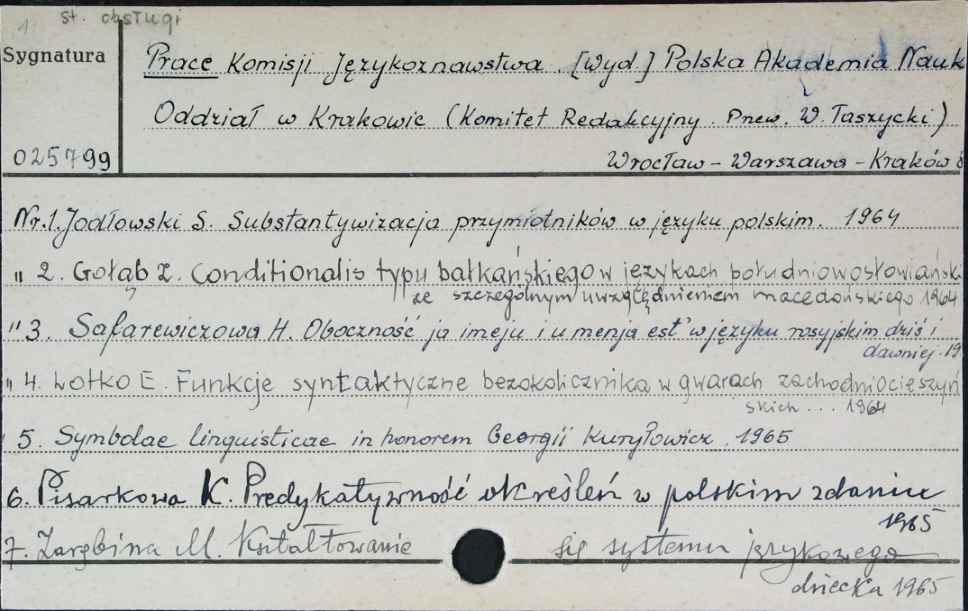 1. st. obsługi
Sygnatura
Prace Komisji Językoznawstwa. [Wyd.] Polska Akademia Nauk
Oddział w Krakowie (Komitet Redakcyjny. Pnew. W. Taszycki)
025799
Wrocław - Warszawa - Kraków
Nr.1. Jodłowski S. Substantywizacja przymiotników w języku polskim. 1964
" 2. Gołąb Z. Conditionalis typu bałkańskiego w językach południowosłowiański
ze szczególnym uwzględnieniem macedońskiego 1964
" 3. Safarewiczowa H. Oboczność ja imeju i u menja est' w języku rosyjskim dziś i
dawniej. 19
" 4. Lotko E. Funkcje syntaktyczne bezokolicznika w gwarach zachodniocieszyń
skich ... 1964
5. Symbolae linguisticae in honorem Georgii Kuryłowicz. 1965
6. Pisarkowa K. Predykatywność określeń w polskim zdaniu
1965
7. Zarębina M. Kształtowanie się systemu językowego
dziecka 1965